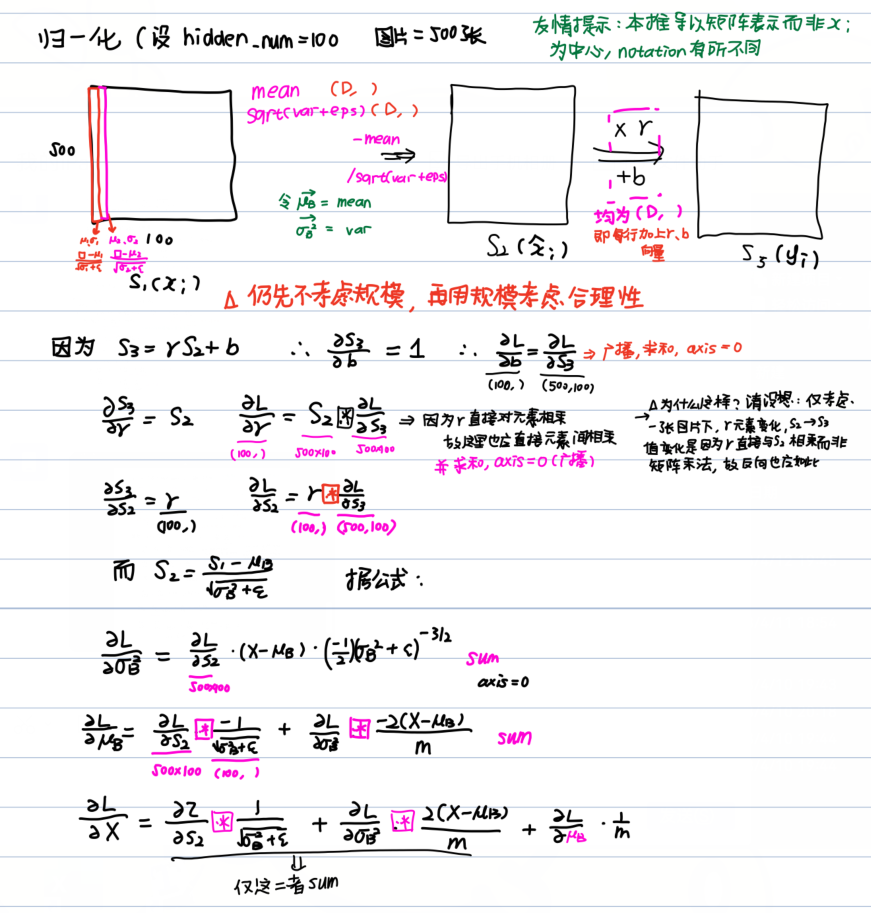 归一化 (设 hidden_num=100 图片=500张
友情提示:本推导以矩阵表示而非xi
为中心, notation 有所不同
mean (D, )
sqrt(var+eps) (D, )
-mean
/sqrt(var+eps)
令 μB = mean
σB² = var
500
100
μ1,σ1 μ2,σ2
□-μ1/√σ1+ε □-μ2/√σ2+ε
S1(xi)
S2(x̂i)
x r
+b
均为(D, )
即每行加上r、b
向量
S3(yi)
Δ 仍先不考虑规模,再用规模考虑合理性
因为 S3=rS2+b ∴ ∂S3/∂b = 1 ∴ ∂L/∂b = ∂L/∂S3 ⇒ 广播,求和, axis=0
(100,) (500,100)
∂S3/∂r = S2 ∂L/∂r = S2 * ∂L/∂S3 ⇒ 因为r直接对元素相乘
故这里也应直接元素间相乘
并求和, axis=0 (广播)
(100,) 500x100 500x100
→ Δ为什么这样?请设想:仅考虑
一张图片下, r元素变化, S2→S3
值变化是因为r直接与S2相乘而非
矩阵乘法,故反向也应如此
∂S3/∂S2 = r ∂L/∂S2 = r * ∂L/∂S3
(100,) (100,) (500,100)
而 S2 = S1-μB/√σB²+ε 据公式:
∂L/∂σB² = ∂L/∂S2 · (X-μB) · (-1/2)(σB²+ε)^-3/2 sum
500x100 axis=0
∂L/∂μB = ∂L/∂S2 * -1/√σB²+ε + ∂L/∂σB² * -2(X-μB)/m sum
500x100 (100, )
∂L/∂X = ∂L/∂S2 * 1/√σB²+ε + ∂L/∂σB² .* 2(X-μB)/m + ∂L/∂μB · 1/m
仅这二者sum